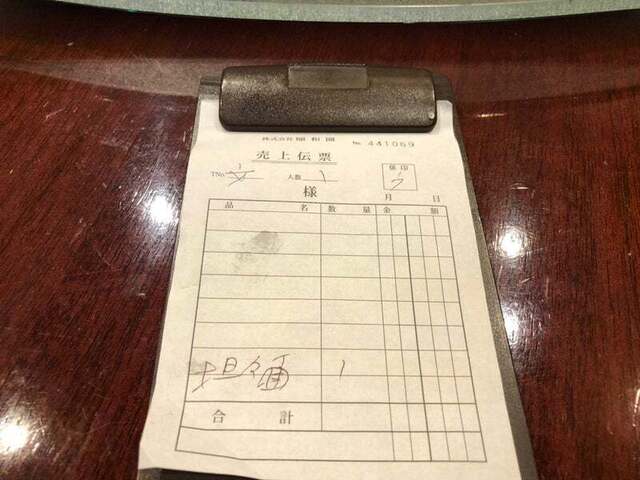 株式会社 頤和園 № 441069
売上伝票
TNo. 1 人数 1 係印 ク
様 月 日
品名 数量 金額
坦々面 1
合計